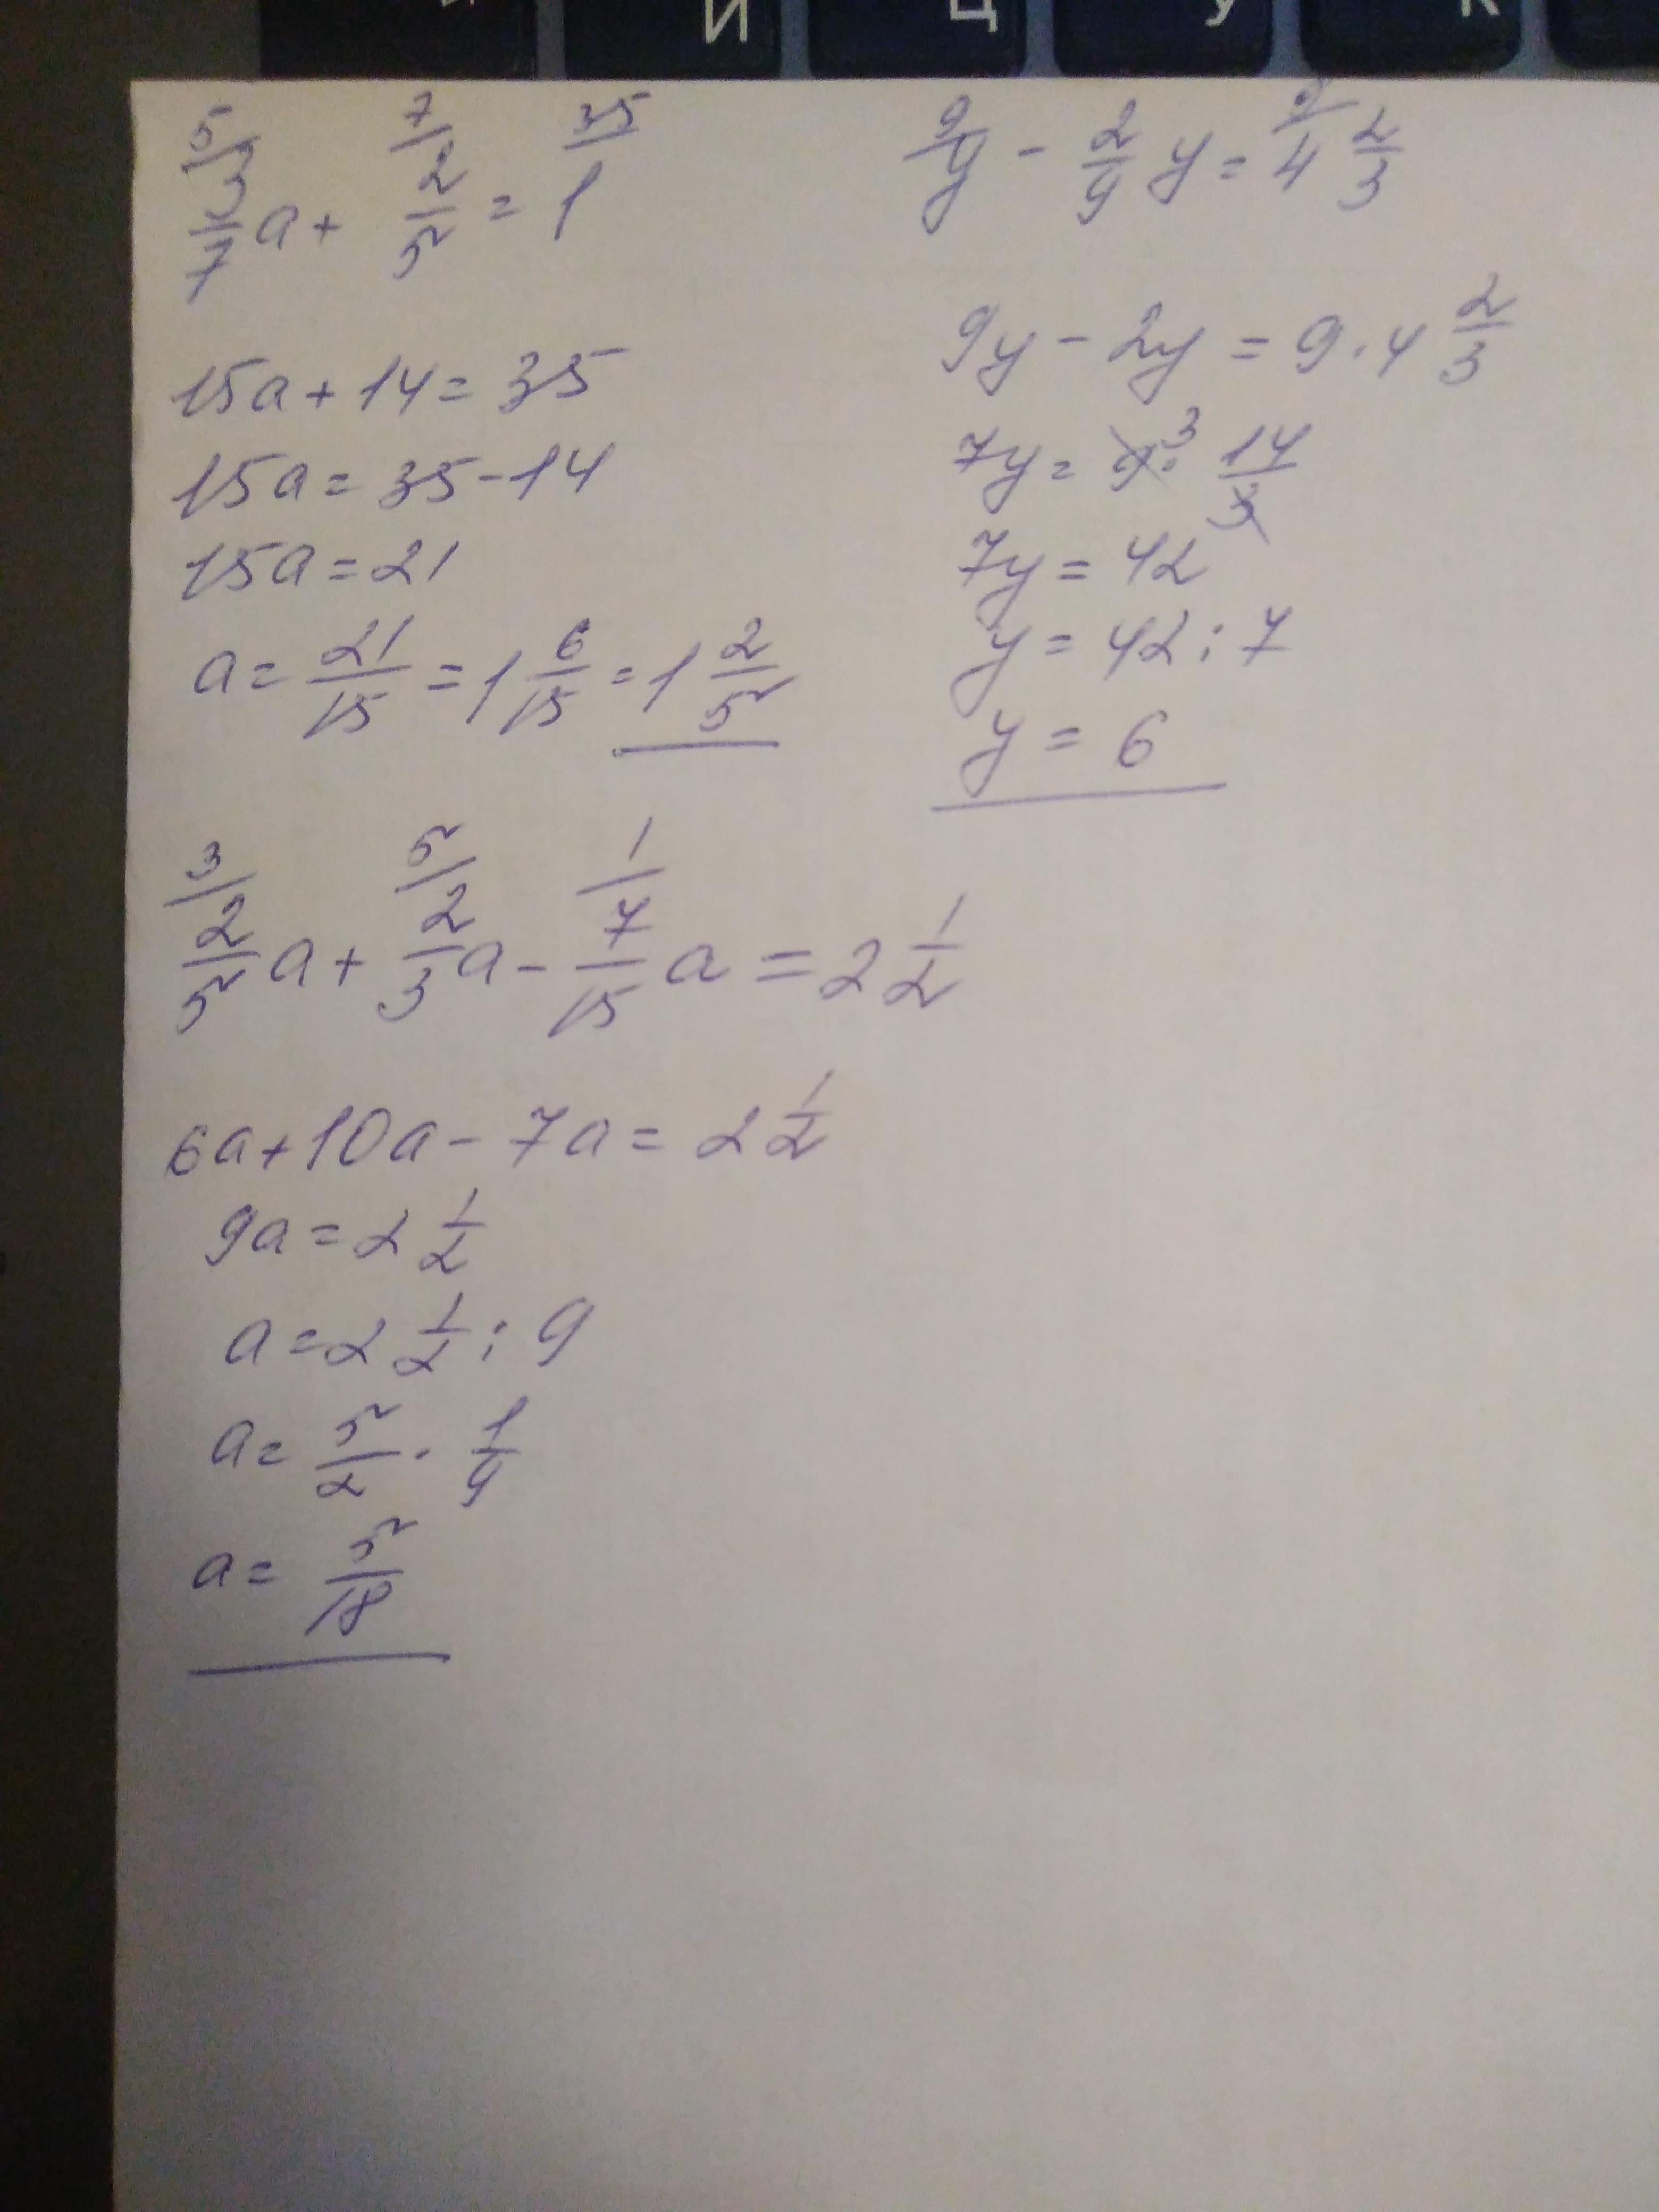 Й Ц У К
5/ 7/ 35/
3/7 a + 2/5 = 1
15a + 14 = 35
15a = 35 - 14
15a = 21
a = 21/15 = 1 6/15 = 1 2/5
9/ 9/
y - 2/9 y = 4 2/3
9y - 2y = 9 · 4 2/3
7y = 9 · 3 14/3
7y = 42
y = 42 : 7
y = 6
3/ 5/ 1/
2/5 a + 2/3 a - 7/15 a = 2 1/2
6a + 10a - 7a = 2 1/2
9a = 2 1/2
a = 2 1/2 : 9
a = 5/2 · 1/9
a = 5/18